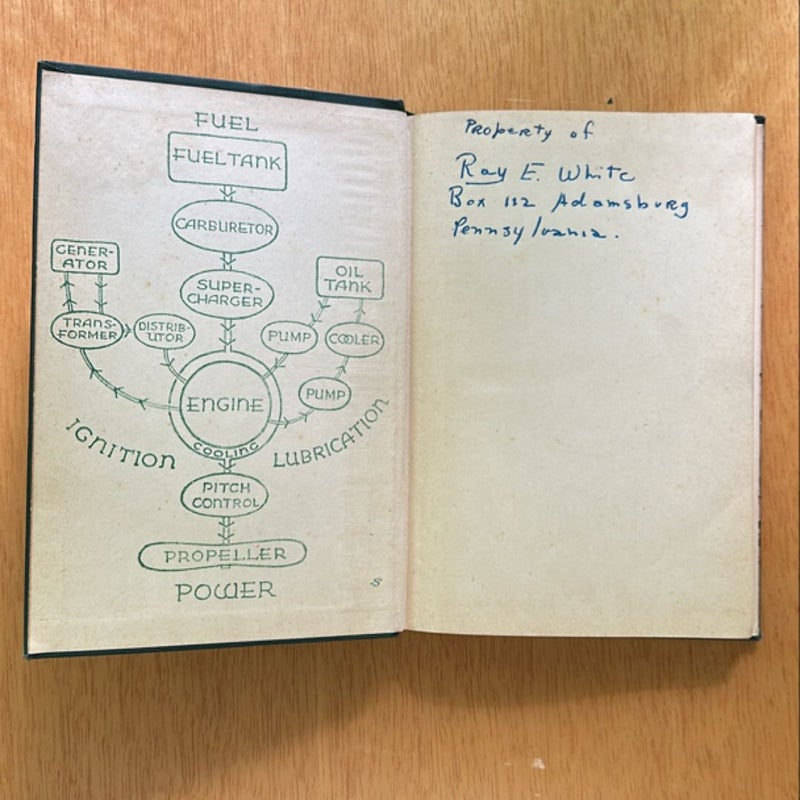 FUEL
FUEL TANK
CARBURETOR
GENER-
ATOR
SUPER-
CHARGER
OIL
TANK
TRANS-
FORMER
DISTRIB-
UTOR
PUMP
COOLER
ENGINE
PUMP
COOLING
IGNITION
LUBRICATION
PITCH
CONTROL
PROPELLER
POWER
S
Property of
Ray E. White
Box 112 Adamsburg
Pennsylvania.